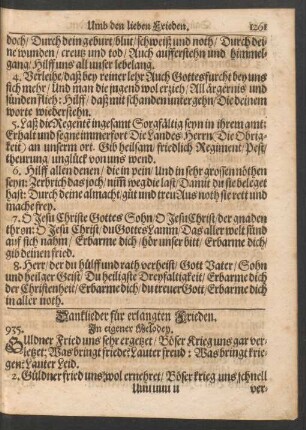 Umb den lieben Frieden. 1261
doch/ Durch dein geburt/ blut/ schweiß und noth/ Durch dei-
ne wunden/ creutz und tod/ Auch aufferstehn und himmel-
gang/ Hilff uns all unser lebelang.
4. Verleihe/ daß bey reiner lehr Auch Gottesfurcht bey uns
sich mehr/ Und man die jugend wol erzieh/ All ärgernis und
sünden flieh: Hilff/ daß mit schanden untergehn/ Die deinem
worte wiederstehn.
5. Laß die Regentē ingesamt Sorgfältig seyn in ihrem amt:
Erhalt und segne immerfort Die Landes-Herrn/ Die Obrig-
keit) an unserm ort. Gib heilsam/ friedlich Regiment/ Pest/
theurung/ unglück von uns wend.
6. Hilff allen denen/ die in pein/ Und in sehr grossen nöthen
seyn: Zerbrich das joch/ nim̄ weg die last/ Damit du sie beleget
hast: Durch deine almacht/ güt und treu Aus noth sie rett und
mache frey.
7. O Jesu Christe Gottes Sohn/ O Jesu Christ/ der gnaden
thron: O Jesu Christ/ du Gottes Lamm/ Das aller welt sünd
auf sich nahm/ Erbarme dich/ hör unser bitt/ Erbarme dich/
gib deinen fried.
8. Herr/ der du hülff und rath verheist/ Gott Vater/ Sohn
und heilger Geist/ Du heiligste Dreyfaltigkeit/ Erbarme dich
der Christenheit/ Erbarme dich/ du treuer Gott/ Erbarme dich
in aller noth.
Dancklieder für erlangten Frieden.
935. In eigener Melodey.
Güldner Fried uns sehr ergetzet/ Böser Krieg uns gar ver-
letzet: Was bringt friede? Lauter freud: Was bringt krie-
gen? Lauter Leid.
2. Güldner fried uns wol ernehret/ Böser krieg uns schnell
ver-